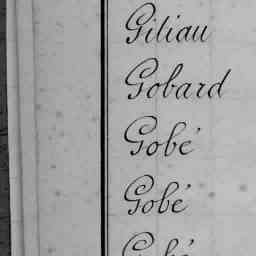 Giliau
Gobard
Gobé
Gobé
Gobé